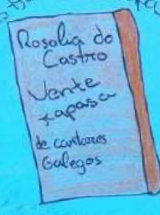 Rosalia do
Castro
Vente
rapasa
de cantares
Galegos